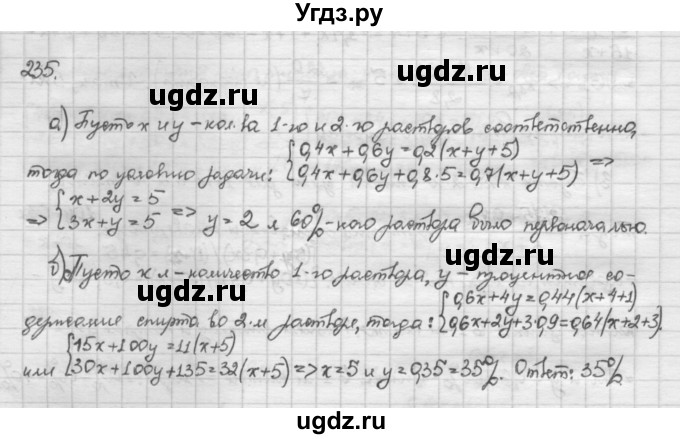 Угдз.ру
235.
ugdz.ru
ugdz.ru
а) Пусть x и y – кол.ва 1-го и 2-го растворов соответственно,
тогда по условию задачи: {0,4x+0,6y=0,2(x+y+5)
{0,4x+0,6y+0,8·5=0,7(x+y+5) =>
=> {x+2y=5
{3x+y=5 => y=2 л 60%-ного раствора было первоначально.
ugdz.ru
ugdz.ru
б) Пусть x л – количество 1-го раствора, y – процентное со-
держание спирта во 2-м растворе, тогда: {0,6x+4y=0,44(x+4+1)
{0,6x+2y+3·0,9=0,64(x+2+3).
или {15x+100y=11(x+5)
{30x+100y+135=32(x+5) => x=5 и y=0,35=35%. Ответ: 35%.
ugdz.ru
ugdz.ru
ugdz.ru